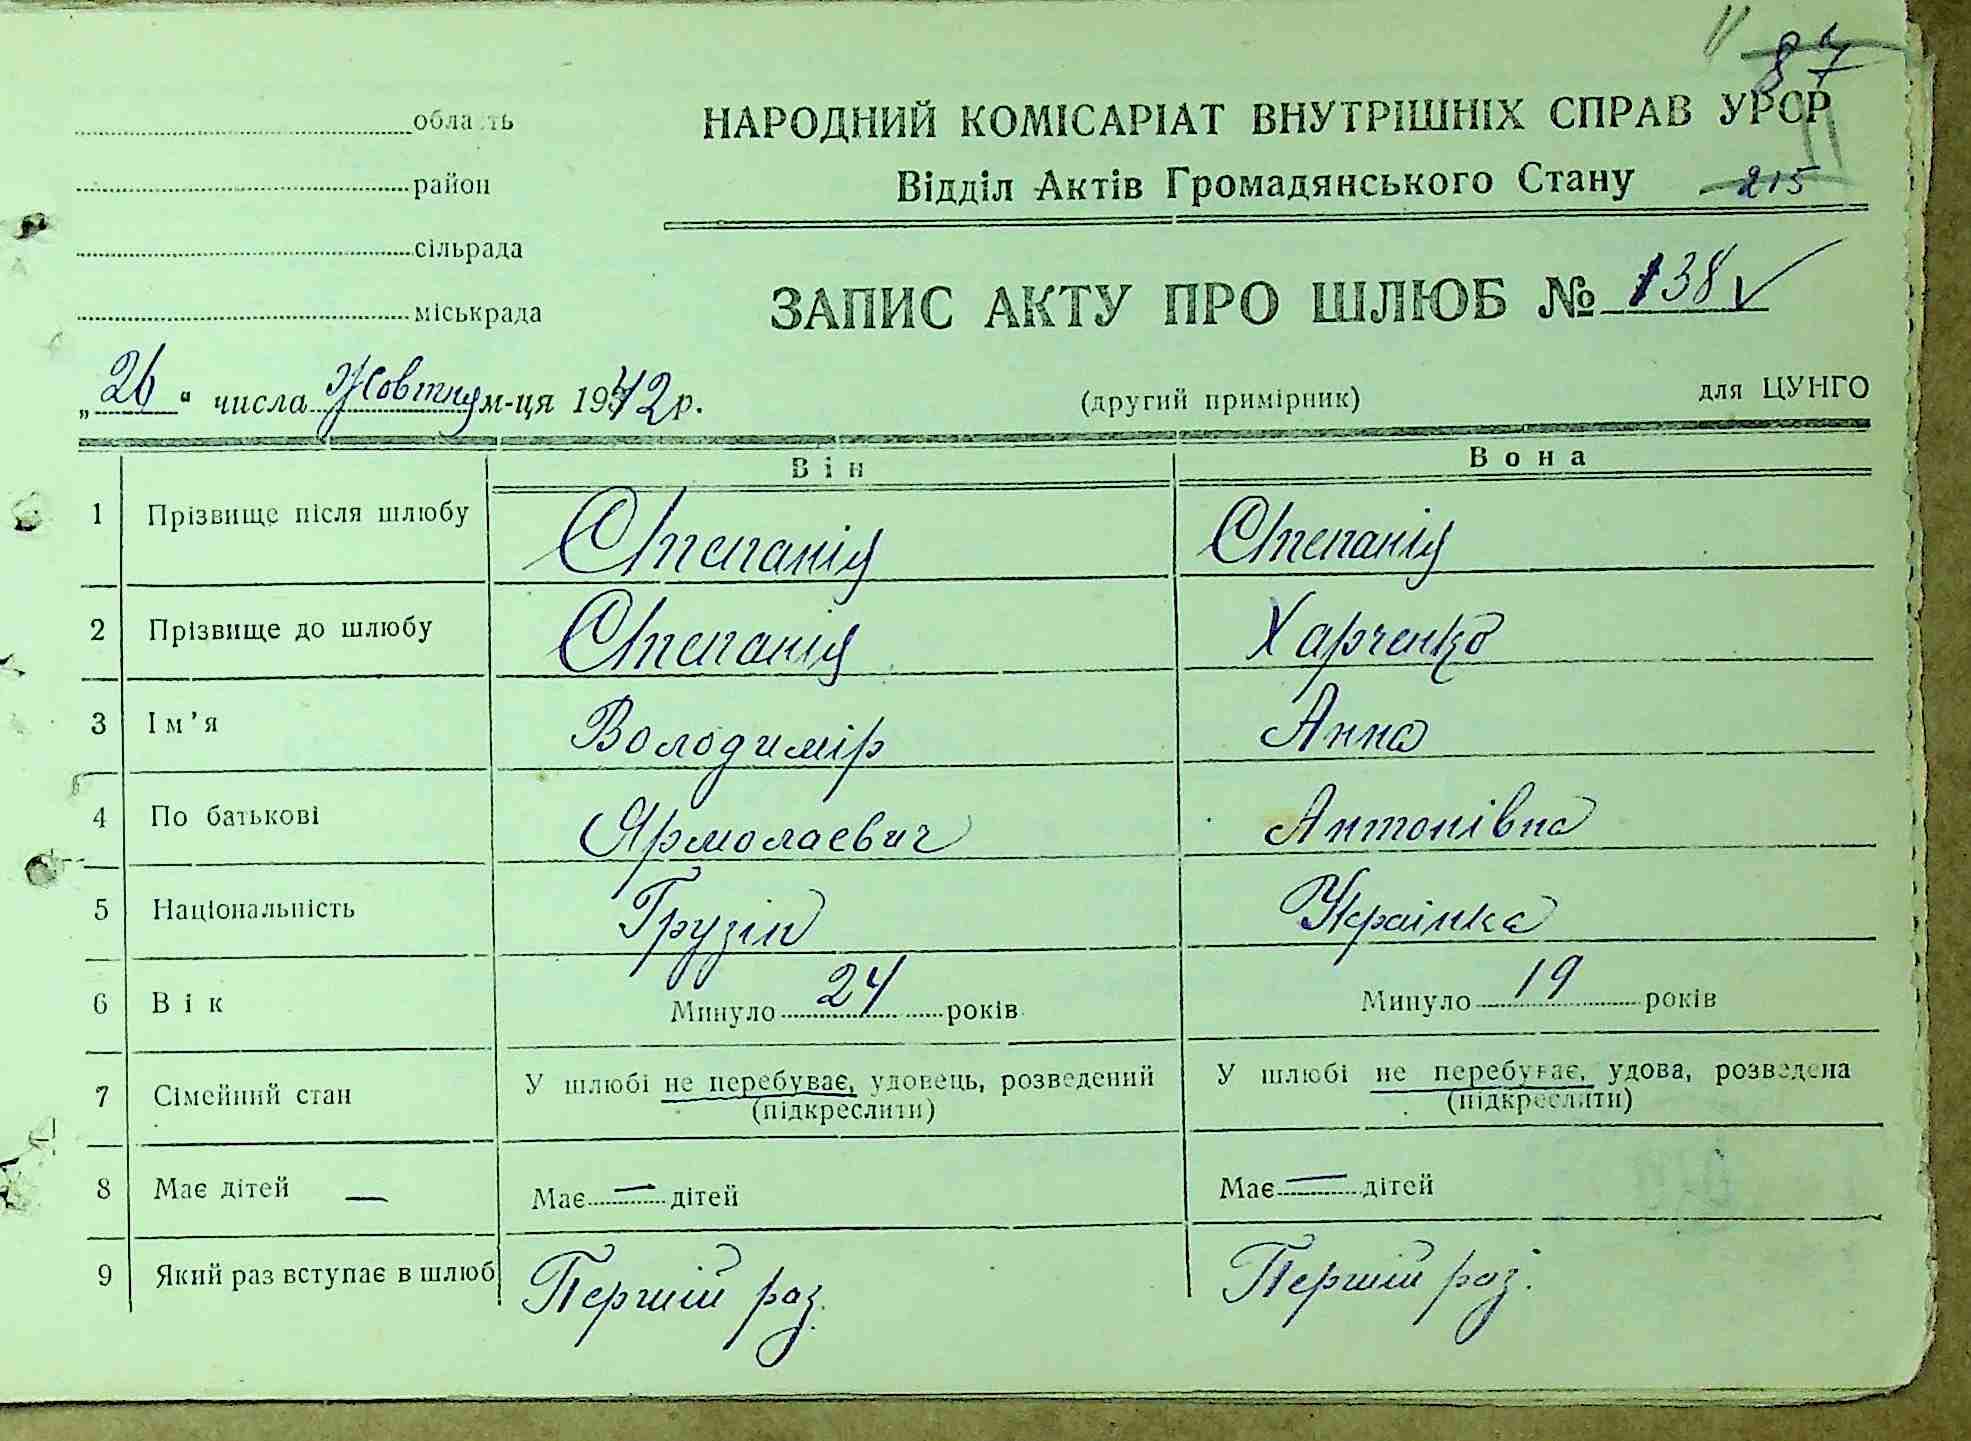 87
область
НАРОДНИЙ КОМІСАРІАТ ВНУТРІШНІХ СПРАВ УРСР
район
Відділ Актів Громадянського Стану 215
сільрада
ЗАПИС АКТУ ПРО ШЛЮБ № 138
міськрада
„26“ числа Жовтня м-ця 1942 р.
(другий примірник)
для ЦУНГО
Він Вона
1 Прізвище після шлюбу Степанія Степанія
2 Прізвище до шлюбу Степанія Харченко
3 Ім'я Володимір Анна
4 По батькові Ярмолаевич Антонівна
5 Національність Грузін Українка
6 Вік Минуло 24 років Минуло 19 років
7 Сімейний стан У шлюбі не перебуває, удовець, розведений У шлюбі не перебуває, удова, розведена
(підкреслити) (підкреслити)
8 Має дітей — Має — дітей Має — дітей
9 Який раз вступає в шлюб Перший раз. Перший раз.